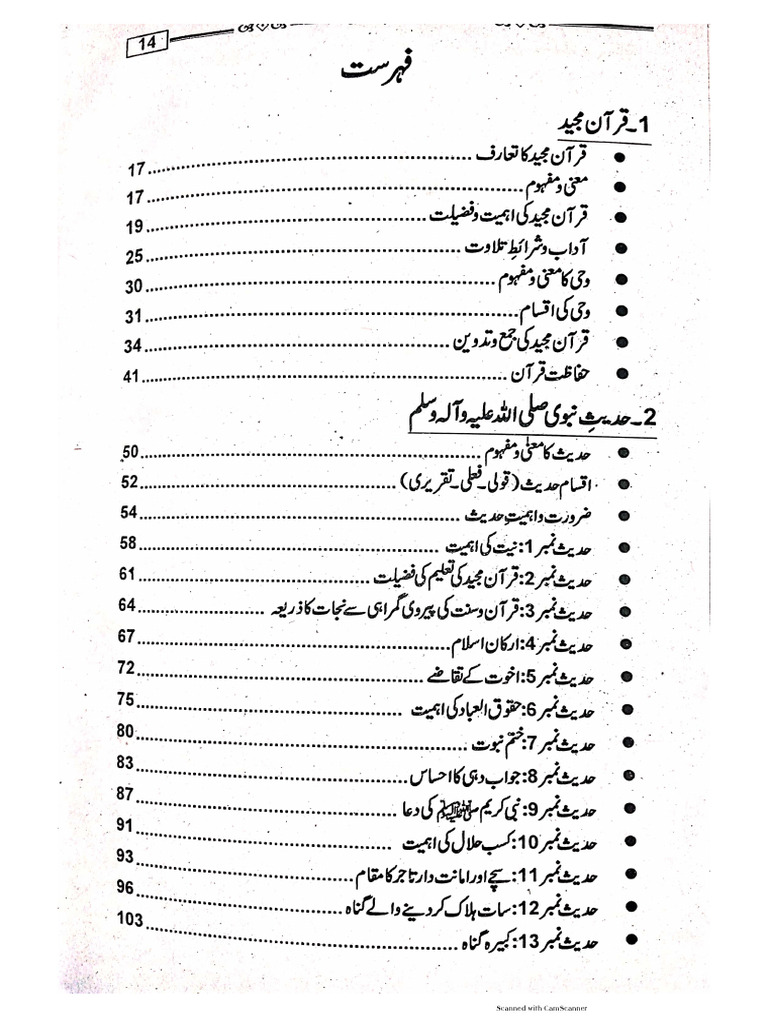 14
فہرست
1۔ قرآن مجید
● قرآن مجید کا تعارف ........ 17
● معنی و مفہوم ........ 17
● قرآن مجید کی اہمیت و فضیلت ........ 19
● آداب و شرائطِ تلاوت ........ 25
● وحی کا معنی و مفہوم ........ 30
● وحی کی اقسام ........ 31
● قرآن مجید کی جمع و تدوین ........ 34
● حفاظت قرآن ........ 41
2۔ حدیثِ نبوی صلی اللہ علیہ وآلہ وسلم
● حدیث کا معنی و مفہوم ........ 50
● اقسام حدیث (قولی۔ فعلی۔ تقریری) ........ 52
● ضرورت و اہمیتِ حدیث ........ 54
● حدیث نمبر 1: نیت کی اہمیت ........ 58
● حدیث نمبر 2: قرآن مجید کی تعلیم کی فضیلت ........ 61
● حدیث نمبر 3: قرآن و سنت کی پیروی گمراہی سے نجات کا ذریعہ ........ 64
● حدیث نمبر 4: ارکان اسلام ........ 67
● حدیث نمبر 5: اخوت کے تقاضے ........ 72
● حدیث نمبر 6: حقوق العباد کی اہمیت ........ 75
● حدیث نمبر 7: ختم نبوت ........ 80
● حدیث نمبر 8: جواب دہی کا احساس ........ 83
● حدیث نمبر 9: نبی کریم ﷺ کی دعا ........ 87
● حدیث نمبر 10: کسب حلال کی اہمیت ........ 91
● حدیث نمبر 11: سچے اور امانت دار تاجر کا مقام ........ 93
● حدیث نمبر 12: سات ہلاک کر دینے والے گناہ ........ 96
● حدیث نمبر 13: کبیرہ گناہ ........ 103
Scanned with CamScanner